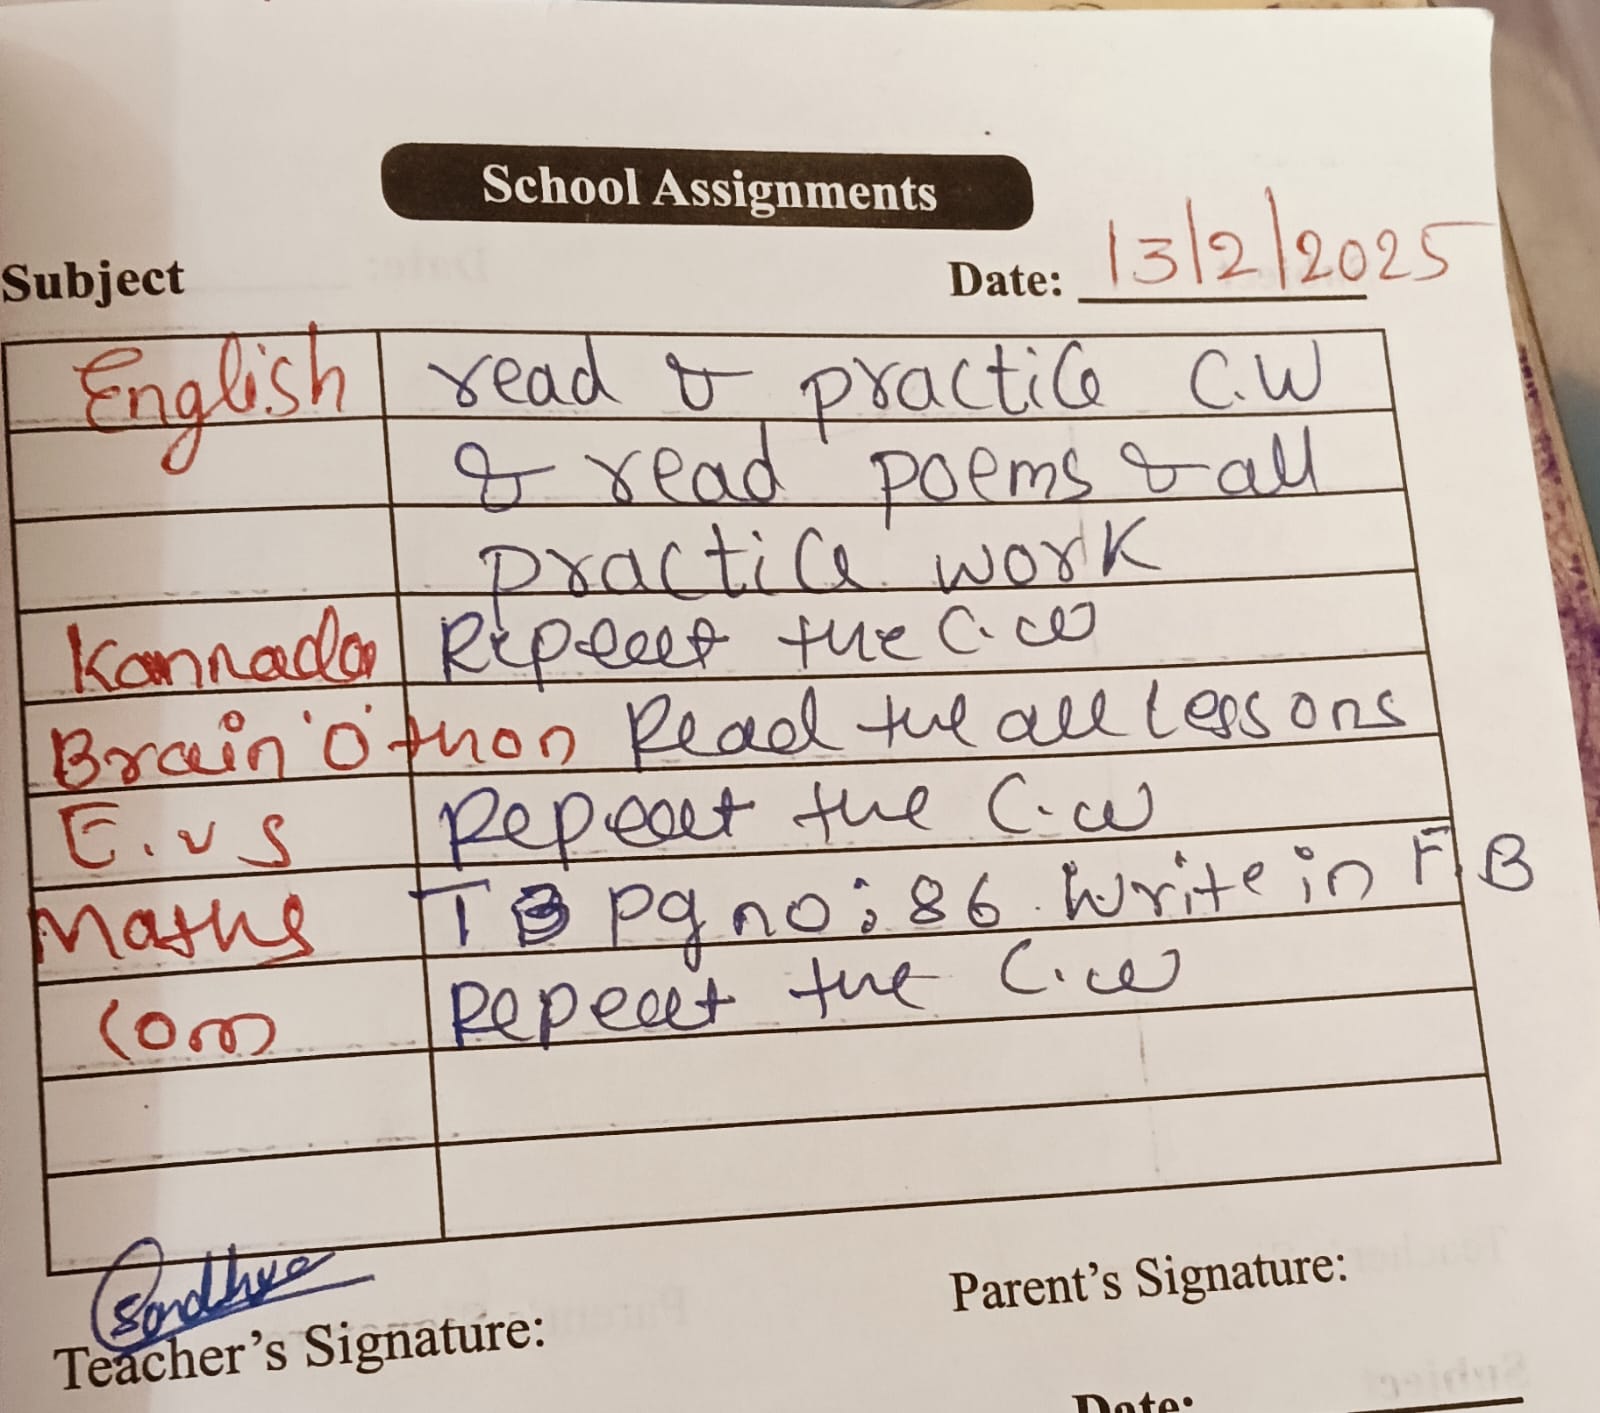 School Assignments
Subject Date: 13/2/2025
English read & practice C.W
& read poems & all
practice work
Kannada Repeat the C.W
Brain 'O' thon Read the all lessons
E.V.S Repeat the C.W
Maths TB pg no: 86. Write in F.B
Com Repeat the C.W
Sandhya
Teacher's Signature: Parent's Signature:
Date: